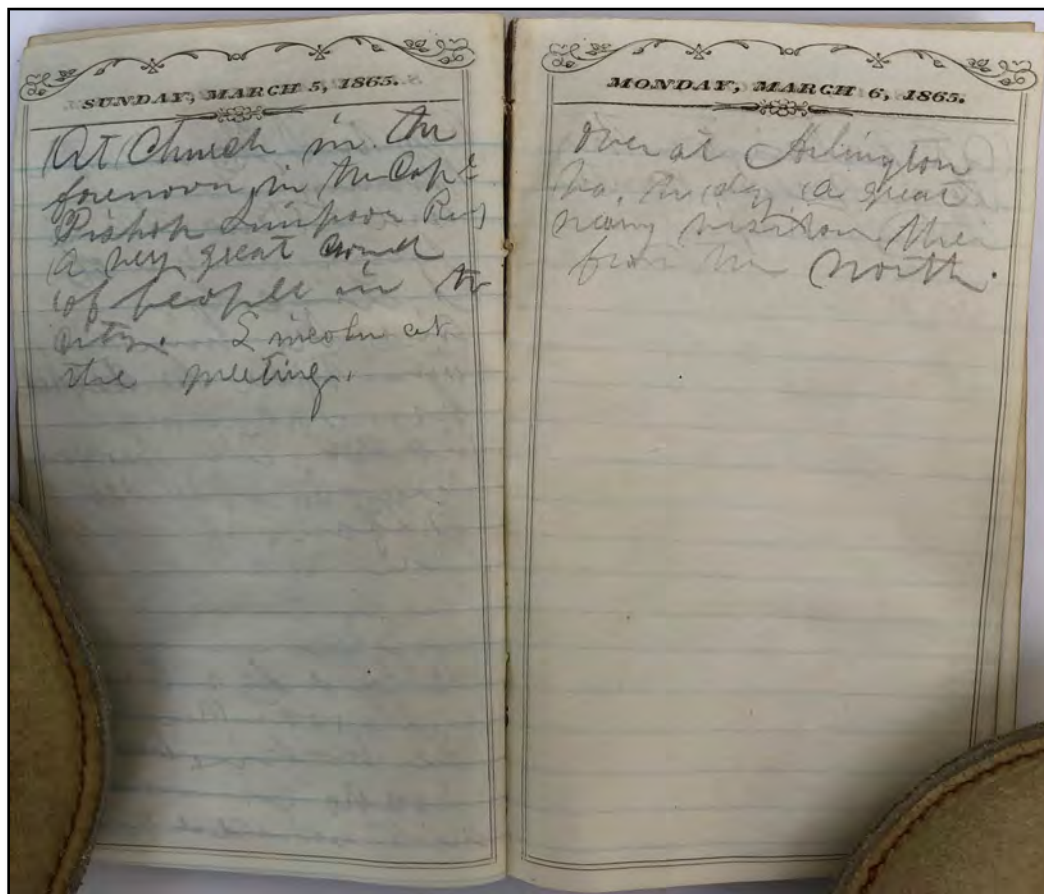 SUNDAY, MARCH 5, 1865.
At Church in the
forenoon, in the Capt
Bishop Simpson
a very great crowd
of people in the
city. Lincoln at
the meeting.
MONDAY, MARCH 6, 1865.
Over at Arlington
to day a great
many visitors there
from the North.